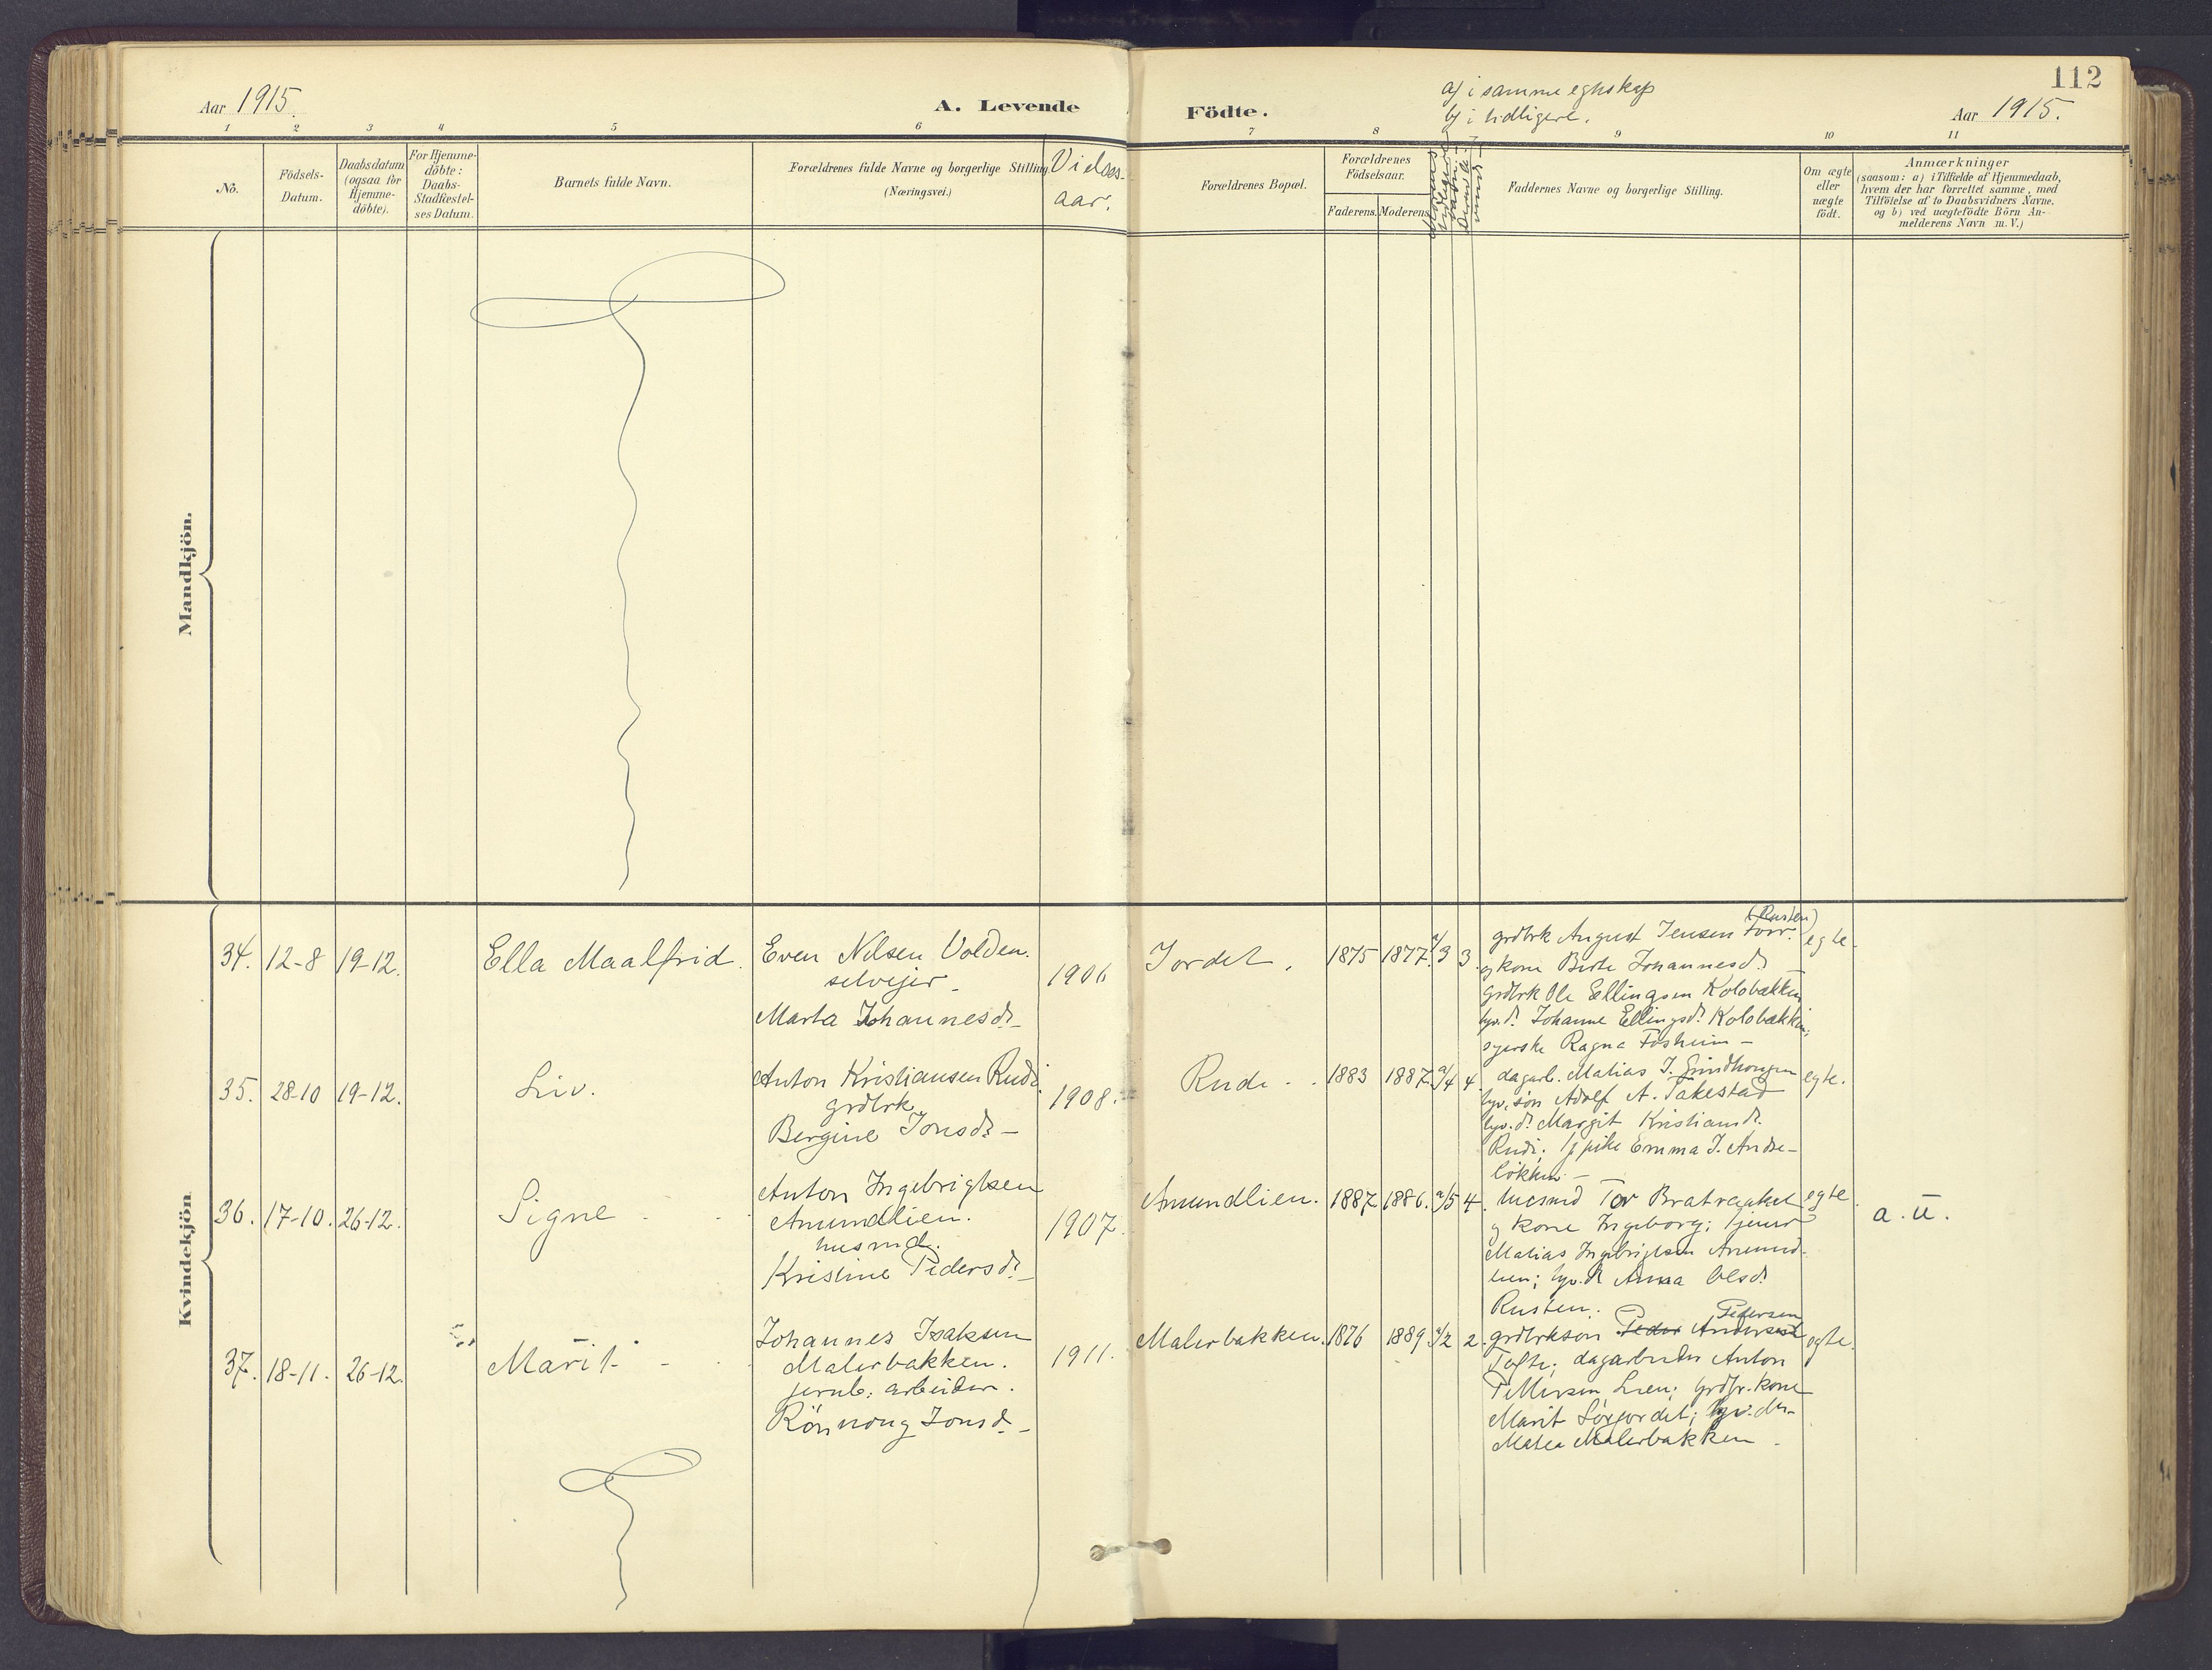 112
Aar 1915.
A. Levende
Födte.
a) i samme egteskap
b) i tidligere.
Aar 1915.
1 2 3 4 5 6 7 8 9 10 11
No.
Födsels-
Datum.
Daabsdatum
(ogsaa for
Hjemme-
döbte).
For Hjemme-
döbte:
Daabs-
Stadfæstel-
ses Datum.
Barnets fulde Navn.
Forældrenes fulde Navne og borgerlige Stilling
(Næringsvei.)
Vielses-
aar.
Forældrenes Bopæl.
Forældrenes
Födselsaar.
Faderens. Moderens.
Faddernes Navne og borgerlige Stilling.
Om ægte
eller
uægte
födt.
Anmærkninger
(saasom: a) i Tilfælde af Hjemmedaab,
hvem der har forrettet samme, med
Tilföielse af to Daabsvidners Navne.
og b) ved uægtefödte Börn An-
melderens Navn m. V.)
Mandkjön.
Kvindekjön
34. 12-8 19-12. Ella Maalfrid.
Even Nilsen Volden.
selveier -
Marta Johannesdr. -
1906
Jordet. 1875 1877. a/3 3.
grdbrk August Jensen
(Rusten)
og kone Berte Johannesdr. -
grdbrk Ole Ellingsen Kolobækken
hjv. dr. Johanne Ellingsdr. Kolobækken;
syerske Ragna Fosheim -
egte.
35. 28-10 19-12. Liv.
Anton Kristiansen Rudi
grdbrk
Bergine Jonsdr. -
1908.
Rudi. 1883 1887. a/4 4.
dagarb. Matias J.
hjv. søn Adolf A. Takestad
hjv. dr. Margit Kristiansdr.
Rudi; tj pike Emma J. Andre-
løkken -
egte.
36. 17-10. 26-12. Signe
Anton Ingebrigtsen
Amundlien.
husmd.
Kristine Pedersdr. -
1907.
Amundlien. 1887 1886. a/5 4.
husmd Tor
og kone Ingeborg; tjener
Matias Ingebrigtsen Amund-
lien; hjv. dr. Anna Olsdr
Rusten.
egte.
a. u.
37. 18-11. 26-12. Marit
Johannes Isaksen
Malerbakken.
jernb. arbeider.
Rönnoug Jonsdr. -
1911.
Malerbakken. 1876 1889 a/2 2.
Pedersen
grdbrksön Peder Anders
Tofte; dagarbeider Anton
Lien; grdbr. kone
Marit Sörjordet; hjv. dr.
Matea Malerbakken.
egte.